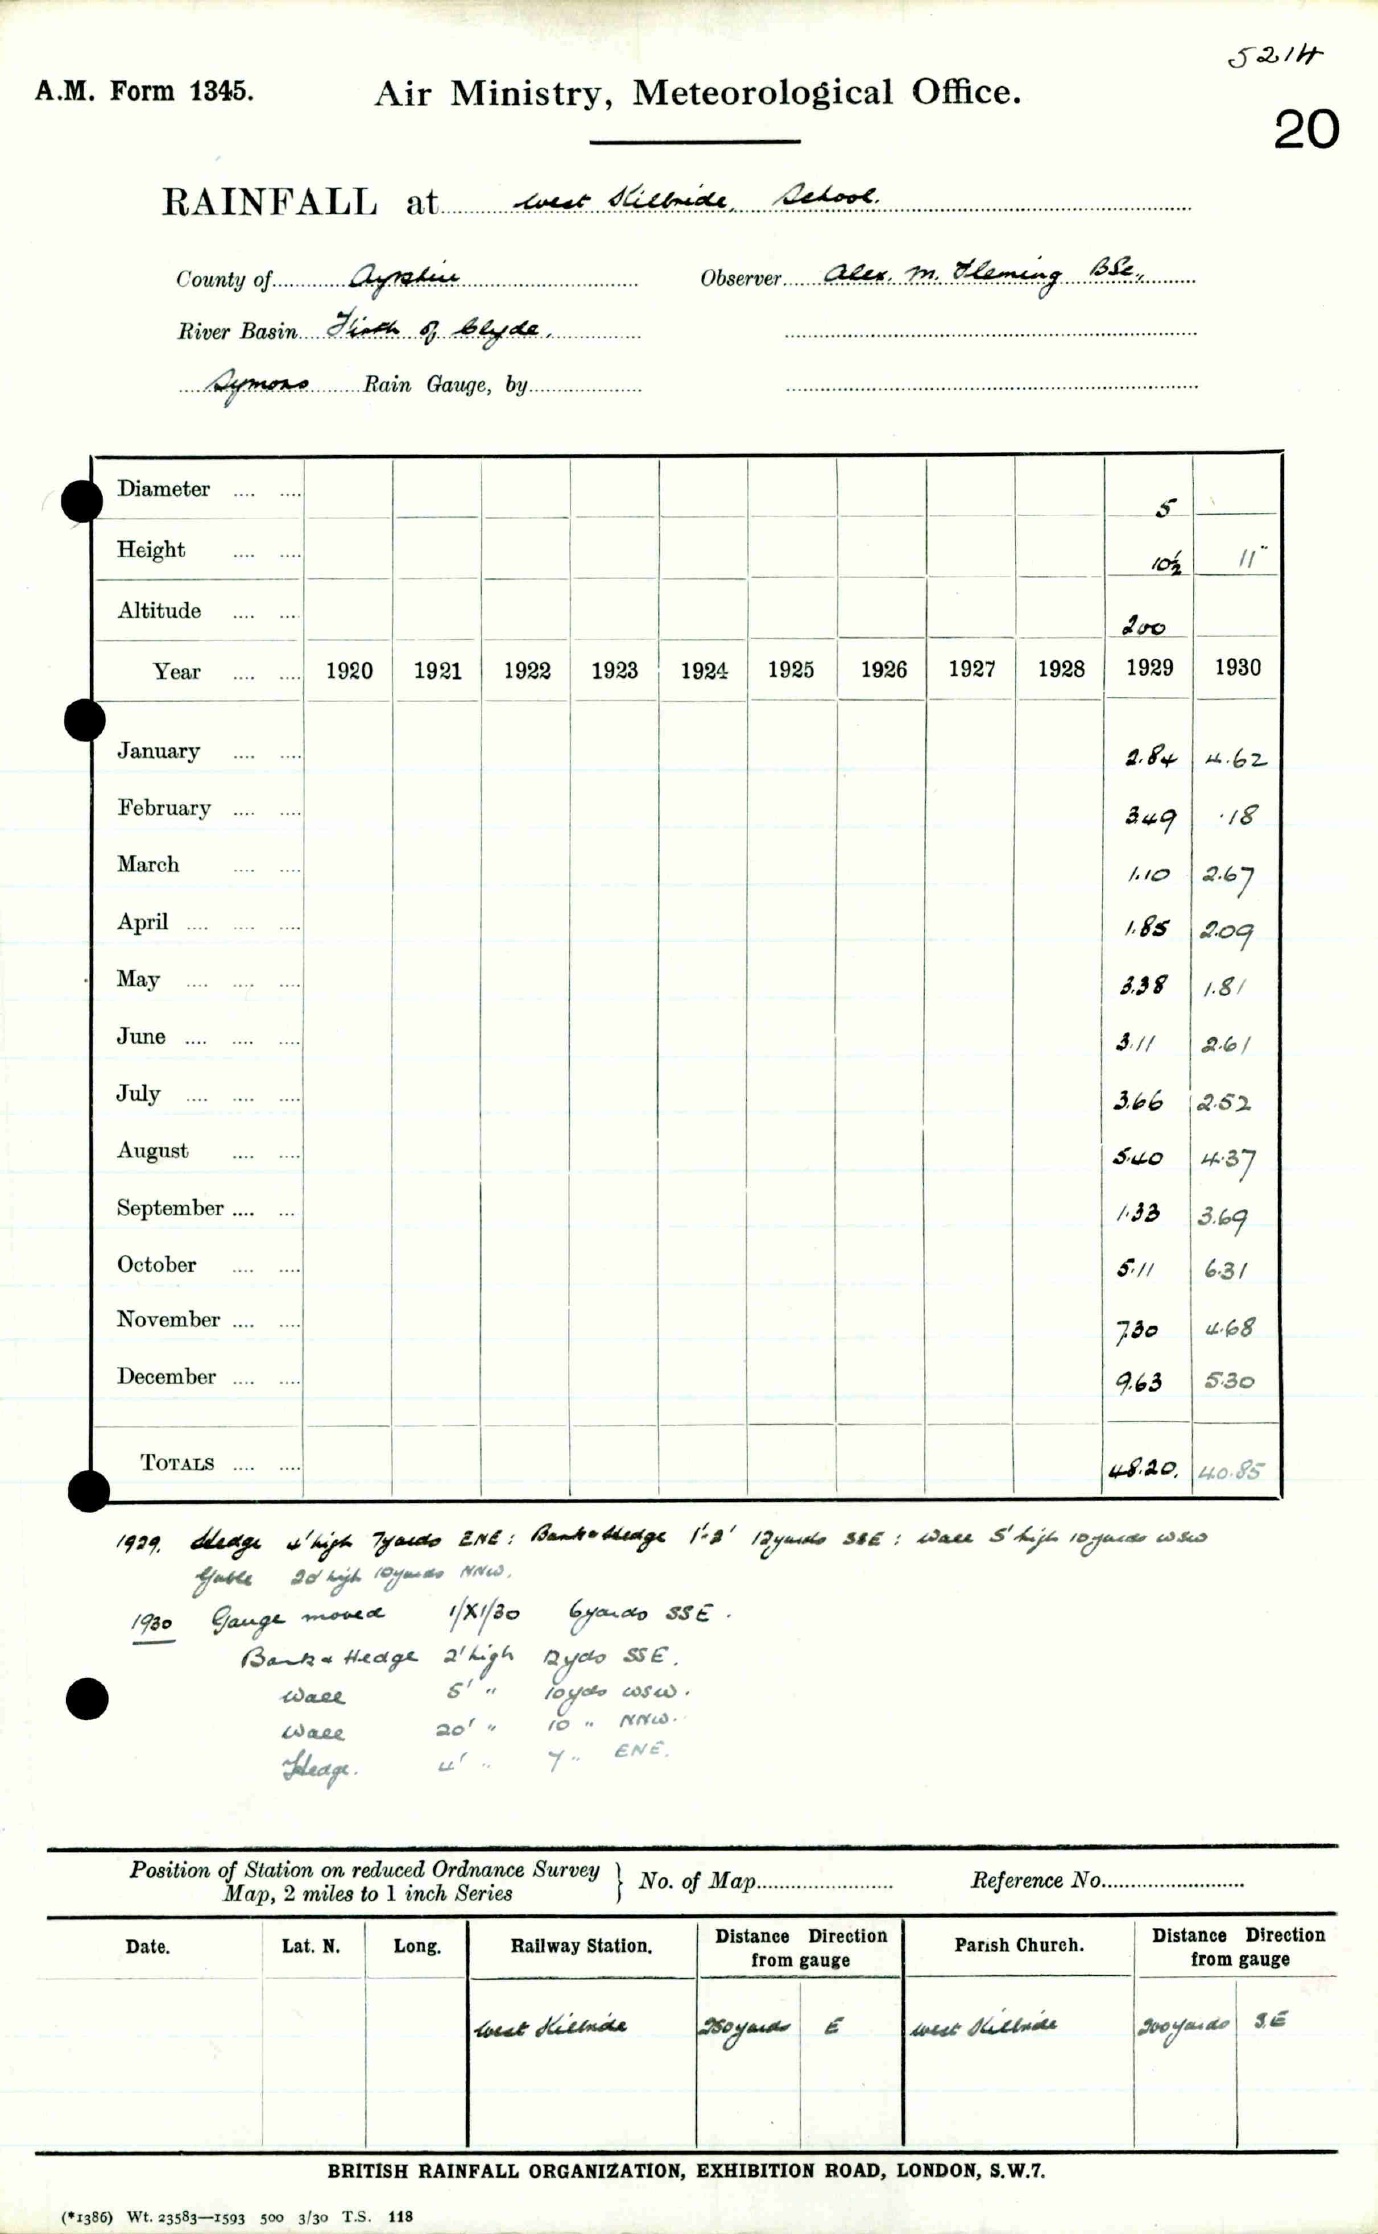 5214
A.M. Form 1345.
Air Ministry, Meteorological Office.
20
RAINFALL at West Kilbride, School.
County of Ayrshire Observer Alex. M. Fleming BSc.,
River Basin Firth of Clyde.
Symons Rain Gauge, by
Diameter .... .... 5
Height .... .... 10½ 11"
Altitude .... .... 200
Year .... .... 1920 1921 1922 1923 1924 1925 1926 1927 1928 1929 1930
January .... .... 2.84 4.62
February .... .... 3.49 .18
March .... .... 1.10 2.67
April .... .... .... 1.85 2.09
May .... .... .... 3.38 1.81
June .... .... .... 3.11 2.61
July .... .... .... 3.66 2.52
August .... .... 5.40 4.37
September .... ... 1.33 3.69
October .... .... 5.11 6.31
November .... .... 7.30 4.68
December .... .... 9.63 5.30
TOTALS .... .... 48.20. 40.85
1929. Hedge 4' high 7 yards ENE: Bank & Hedge 1'-2' 12 yards SSE: Wall 5' high 10 yards WSW
Gable 20' high 10 yards NNW.
1930 Gauge moved 1/XI/30 6 yards SSE.
Bank & Hedge 2' high 12 yds SSE.
Wall 5' " 10 yds WSW.
Wall 20' " 10 " NNW.
Hedge. 4' " 7 " ENE.
Position of Station on reduced Ordnance Survey
Map, 2 miles to 1 inch Series } No. of Map Reference No.
Date. Lat. N. Long. Railway Station. Distance Direction from gauge Parish Church. Distance Direction from gauge
West Kilbride 250 yards E West Kilbride 300 yards S.E
BRITISH RAINFALL ORGANIZATION, EXHIBITION ROAD, LONDON, S.W.7.
(*1386) Wt. 23583—1593 500 3/30 T.S. 118